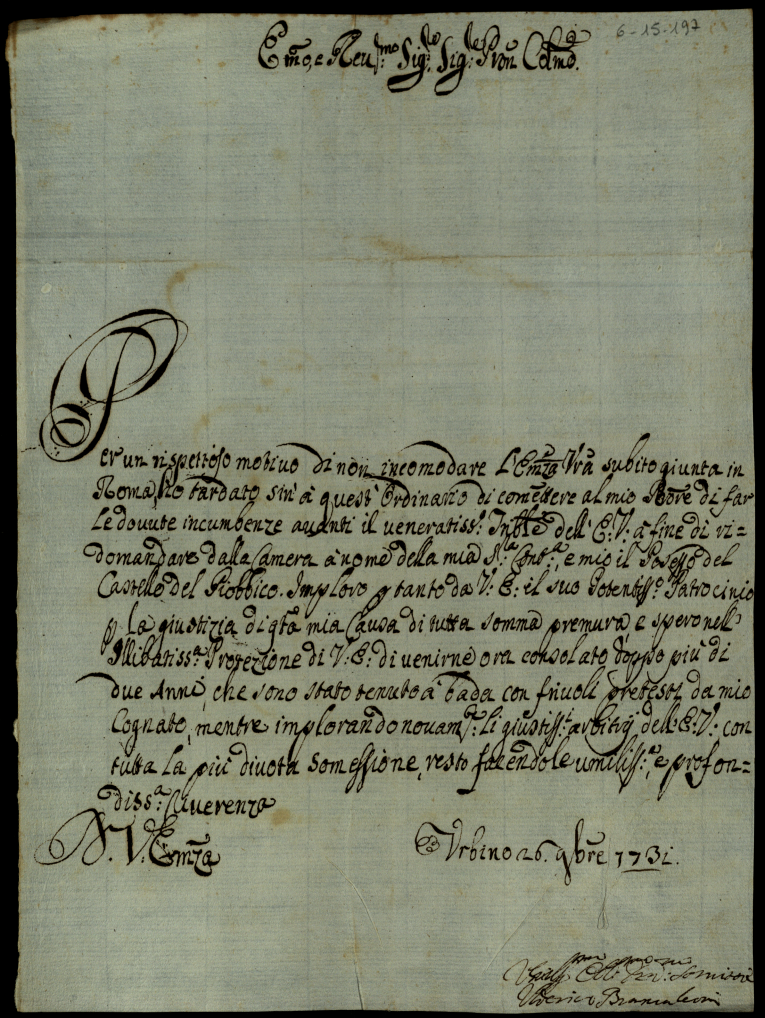 6-15-197
Em̃o, e Reu.mo Sig.re Sig.re Pron̄ Colmo.
Per un rispettoso motivo di non incomodare l'Em̃za Vrã subito giunta in
Roma, ho tardato sin' à quest' Ordinario di com̃ettere al mio Procre di far
le dovute incumbenze avanti il veneratiss.o Tribl̃e dell' E: V: à fine di ri=
domandare dalla Camera à nome della mia S.ra Cont.a, e mio il Possesso del
Castello del Piobbico. Imploro p tanto da V: E: il suo Potentiss.o Patrocinio
p la giustizia di qtã mia Causa di tutta somma premura, e spero nell'
Illibatiss.a Protezione di V: E: di venirne ora consolato doppo più di
due Anni, che sono stato tenuto à bada con frivoli pretesti da mio
Cognato, mentre implorando novam.te li giustiss.i arbitrij dell' E: V: con
tutta la più divota somessione, resto facendole umiliss.a, e profon=
diss.a Riverenza
D. V. Em̃za
Urbino 26. 9bre 1731.
Brancaleoni